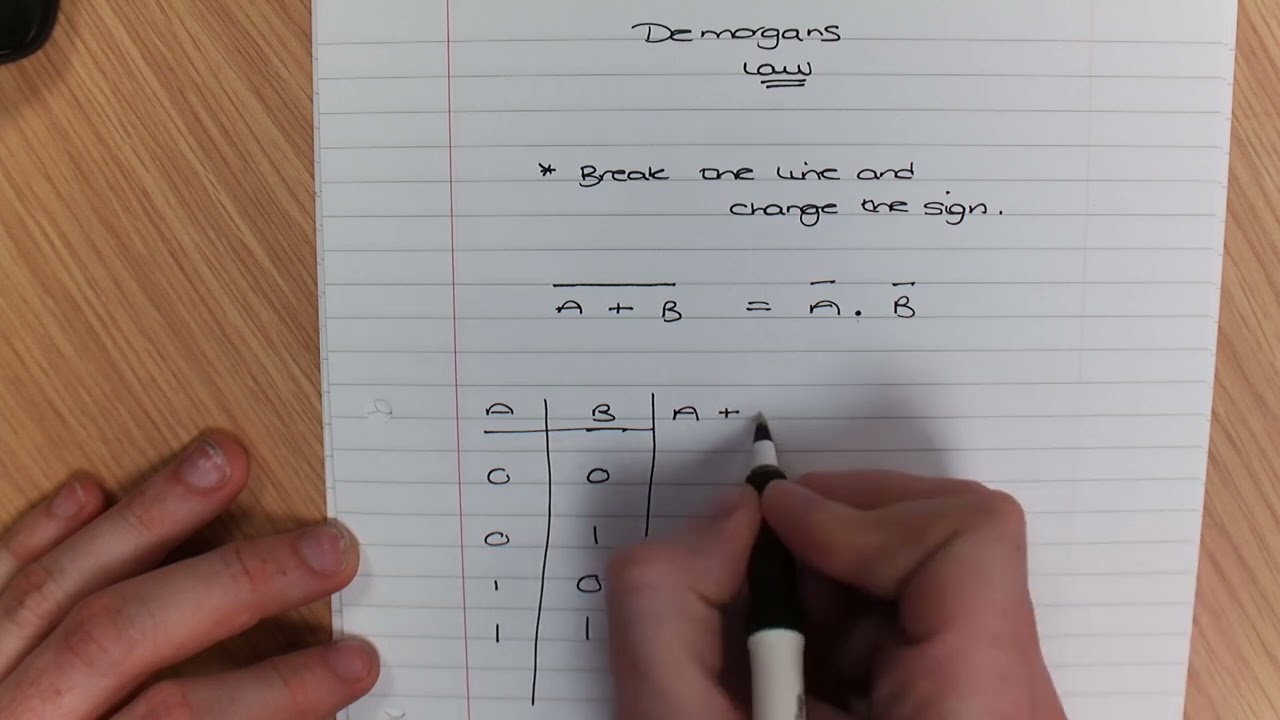 Demorgans
Law
* Break the line and
change the sign.
A̅ ̅+̅ ̅B̅ = A̅ . B̅
A B A +
0 0
0 1
1 0
1 1